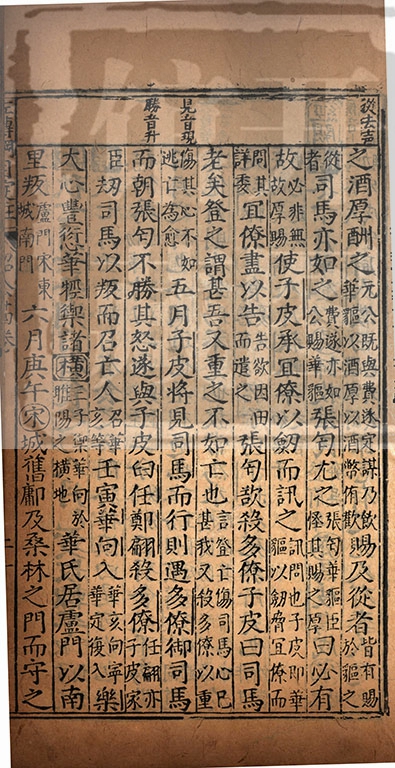 從去声
見音現
勝音升
之酒厚酬之元公既與費遂定謀乃飲華貙以酒厚以酒幣侑歡賜及從者皆有賜於貙之
從者司馬亦如之費遂亦如公賜華貙張匄尤之張匄華貙臣怪其賜之厚曰必有
故必非無故厚賜使子皮承宜僚以劒而訊之訊問也子皮即華貙以劒脅宜僚而
問其詳委宜僚盡以告告欲因田而遣之張匄欲殺多僚子皮曰司馬
老矣登之謂甚吾又重之不如亡也言登亡傷司馬心已甚我又殺多僚以重
傷其心不如逃亡為愈五月子皮將見司馬而行則遇多僚御司馬
而朝張匄不勝其怒遂與子皮臼任鄭翩殺多僚任翩亦子皮家
臣刼司馬以叛而召亡人召華亥等壬寅華向入華亥向寧華定復入樂
大心豐愆華牼禦諸橫三子樂華向於睢陽之橫地華氏居盧門以南
里叛盧門宋東城南門六月庚午宋城舊鄘及桑林之門而守之